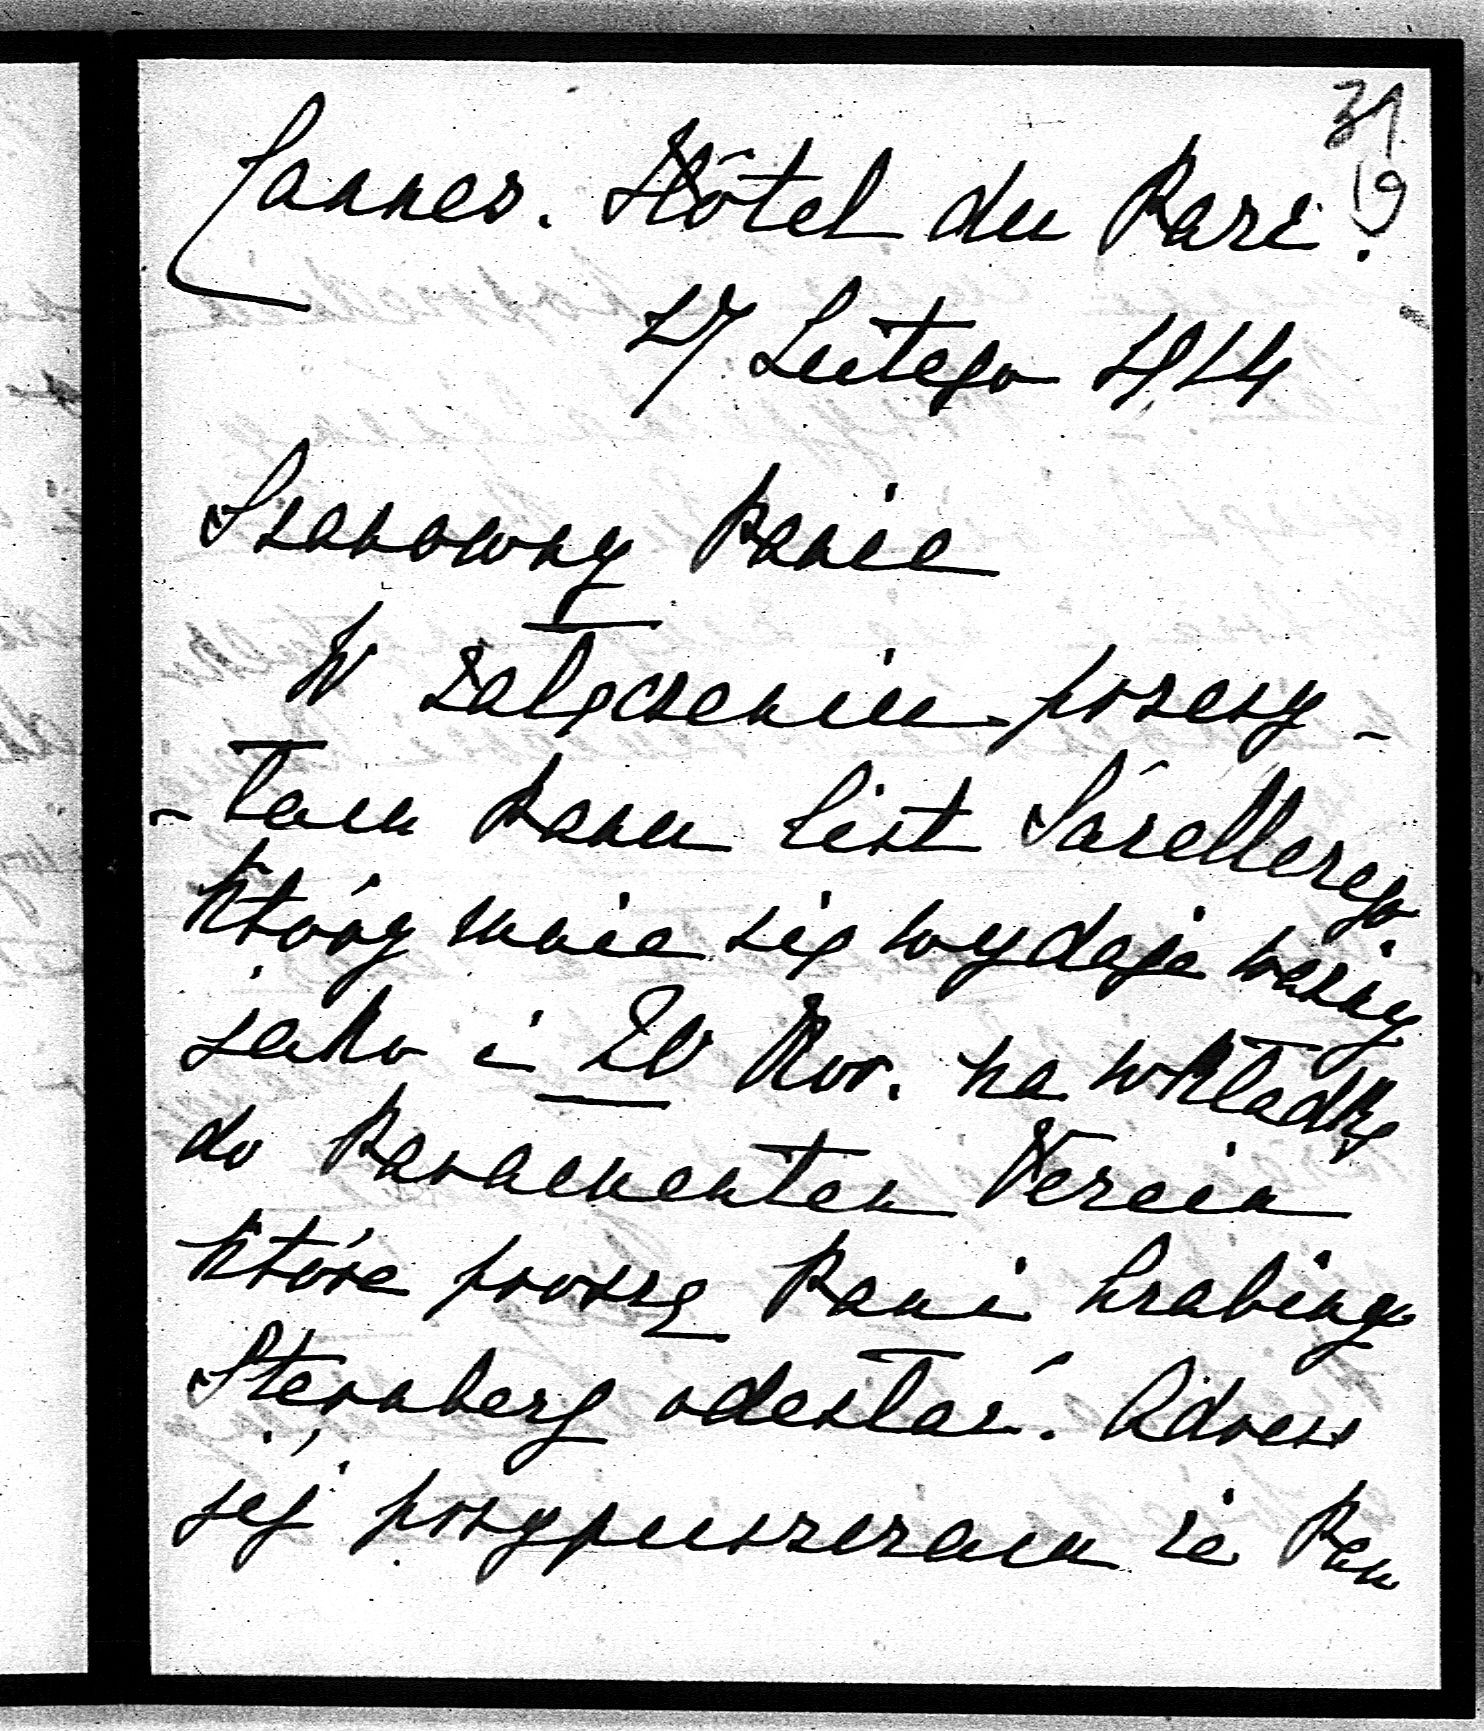 31
19
Cannes. Hôtel du Parc.
27 Lutego 1914
Szanowny Panie
W załączeniu przesy-
-łam Panu list Sárellerego
który mnie się wydaje ważny
jako i 20 Kor. na wkładkę
do Paramenten Verein
które proszę Pani hrabinie
Sternberg odesłać. Adress
jej przypuszczam że Pan